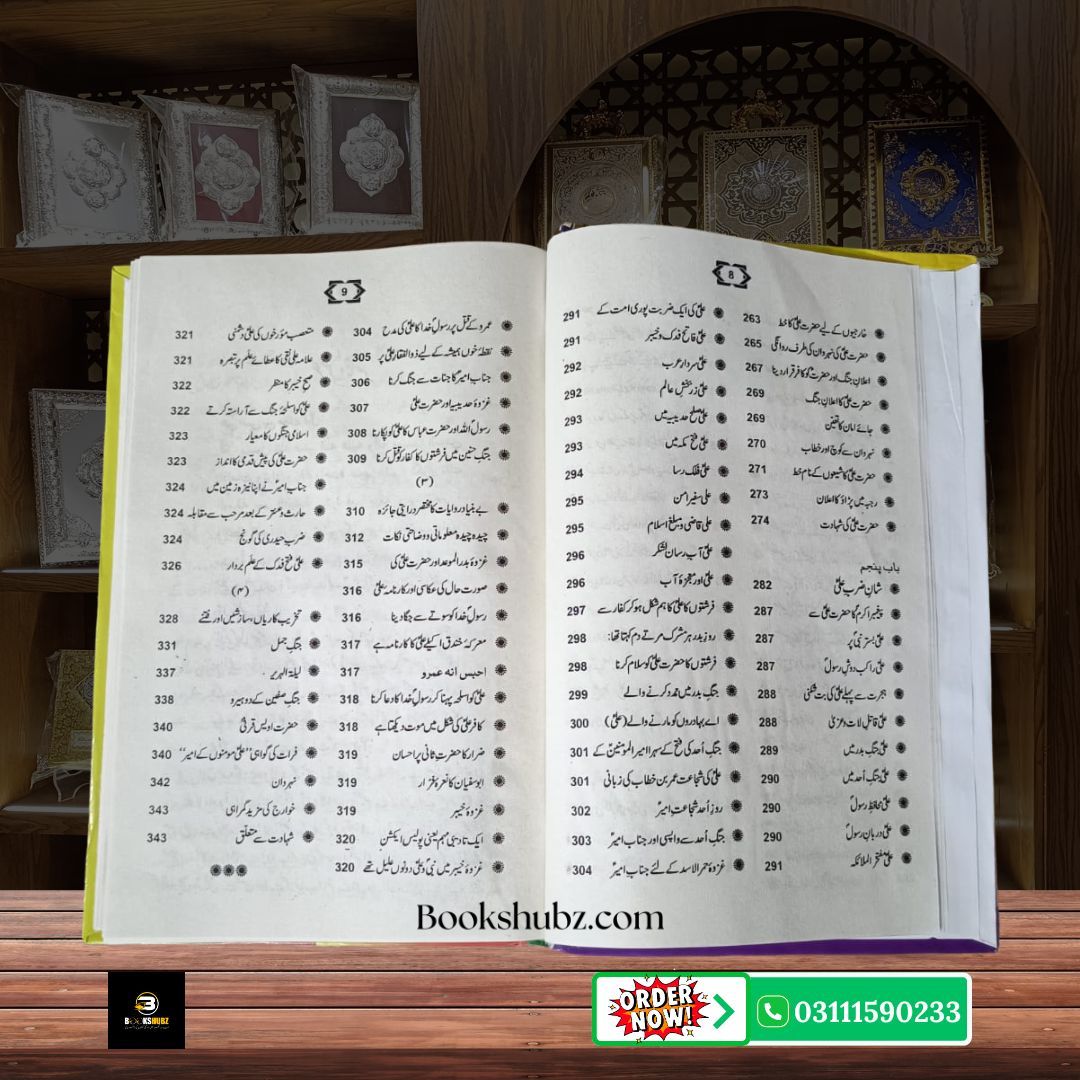 8
خارجیوں کے لیے حضرت علیؑ کا خط 263
حضرت علیؑ کی نہروان کی طرف روانگی 265
اعلان جنگ اور حضرتؑ کو کافر قرار دینا 267
حضرت علیؑ کا اعلان جنگ 269
جائے امان کا تعین 269
نہروان سے کوچ اور خطاب 270
حضرت علیؑ کا شیعوں کے نام خط 271
رحبہ میں پڑاؤ کا اعلان 273
حضرت علیؑ کی شہادت 274
باب پنجم
شانِ ضربِ علیؑ 282
پیغمبر اکرمؐ کا حضرت علیؑ سے 287
علیؑ بستر نبیؐ پر 287
علیؑ راکب دوش رسولؐ 287
ہجرت سے پہلے علیؑ کی بت شکنی 288
علیؑ قاتل لات و عزیٰ 288
علیؑ جنگِ بدر میں 289
علیؑ جنگِ اُحد میں 290
علیؑ محافظِ رسولؐ 290
علیؑ دربان رسولؐ 290
علیؑ مفتخر الملائکہ 291
علیؑ کی ایک ضربت پوری امت کے 291
علیؑ فاتح فدک و خیبر 291
علیؑ سردار عرب 292
علیؑ زر بخش عالم 292
علیؑ صلح حدیبیہ میں 293
علیؑ فتح مکہ میں 293
علیؑ فلک رسا 294
علی سفیر امن 295
علی قاضی و مبلغ اسلام 295
علیؑ آب رسان لشکر 296
علیؑ اور معجزۂ آب 296
فرشتوں کا علیؑ کا ہم شکل ہو کر کفار سے 297
روز بدر ہر مشرک مرتے دم کہتا تھا: 298
فرشتوں کا حضرت علیؑ کو سلام کرنا 298
جنگ بدر میں مدد کرنے والے 299
اے بہادروں کو مارنے والے (علیؑ) 300
جنگ اُحد کی فتح کے سہرا امیر المومنینؑ کے 301
علیؑ کی شجاعت عمر بن خطاب کی زبانی 301
روز اُحد شجاعتِ امیرؑ 302
جنگ اُحد سے واپسی اور جناب امیرؑ 303
غزوۂ حمر الاسد کے لئے جناب امیرؑ 304
9
عمرو کے قتل پر رسولِؐ خدا کا علیؑ کی مدح 304
نقطۂ خوں ہمیشہ کے لیے ذوالفقار علیؑ پر 305
جناب امیرؑ کا جنات سے جنگ کرنا 306
غزوۂ حدیبیہ اور حضرت علیؑ 307
رسولؐ اللہ اور حضرت عباس کا علیؑ کو پکارنا 308
جنگِ حنین میں فرشتوں کا کفار کو قتل کرنا 309
(۳)
بے بنیاد روایات کا مختصر درایتی جائزہ 310
چیدہ چیدہ معلوماتی و وضاحتی نکات 312
غزوۂ بدر الموعد اور حضرت علیؑ کی 315
صورت حال کی عکاسی اور کارنامہ علیؑ 316
رسولِؐ خدا کو سوتے سے جگا دینا 316
معرکۂ خندق اکیلے علیؑ کا کارنامہ ہے 317
احبس انه عمرو 317
علیؑ کو اسلحہ پہنا کر رسولِؐ خدا کا دعا کرنا 318
کافر علیؑ کی شکل میں موت دیکھتا ہے 318
ضرار کا حضرت ثانی پر احسان 319
ابوسفیان کا نعرۂ فرار 319
غزوۂ خیبر 319
ایک تادیبی مہم یعنی پولیس ایکشن 320
غزوۂ خیبر میں نبیؐ و علیؑ دونوں علیل تھے 320
متعصب مؤرخوں کی علیؑ دشمنی 321
علامہ علی نقی کا عطائے علم پر تبصرہ 321
صبح خیبر کا منظر 322
علیؑ کو اسلحۂ جنگ سے آراستہ کرتے 322
اسلامی جنگوں کا معیار 323
حضرت علیؑ کی پیش قدمی کا انداز 323
جناب امیرؑ نے اپنا نیزہ زمین میں 324
حارث و عنتر کے بعد مرحب سے مقابلہ 324
ضربِ حیدری کی گونج 324
علیؑ فتح فدک کے علم بردار 326
(۴)
تخریب کاریاں، سازشیں اور فتنے 328
جنگِ جمل 331
لیلۃ الہریر 337
جنگِ صفین کے دو ہیرہ 338
حضرت اویس قرنیؓ 340
فرات کی گواہی ”علیؑ مومنوں کے امیر“ 340
نہروان 342
خوارج کی مزید گمراہی 343
شہادت سے متعلق 343
Bookshubz.com
BOOKSHUBZ
ORDER NOW!
03111590233